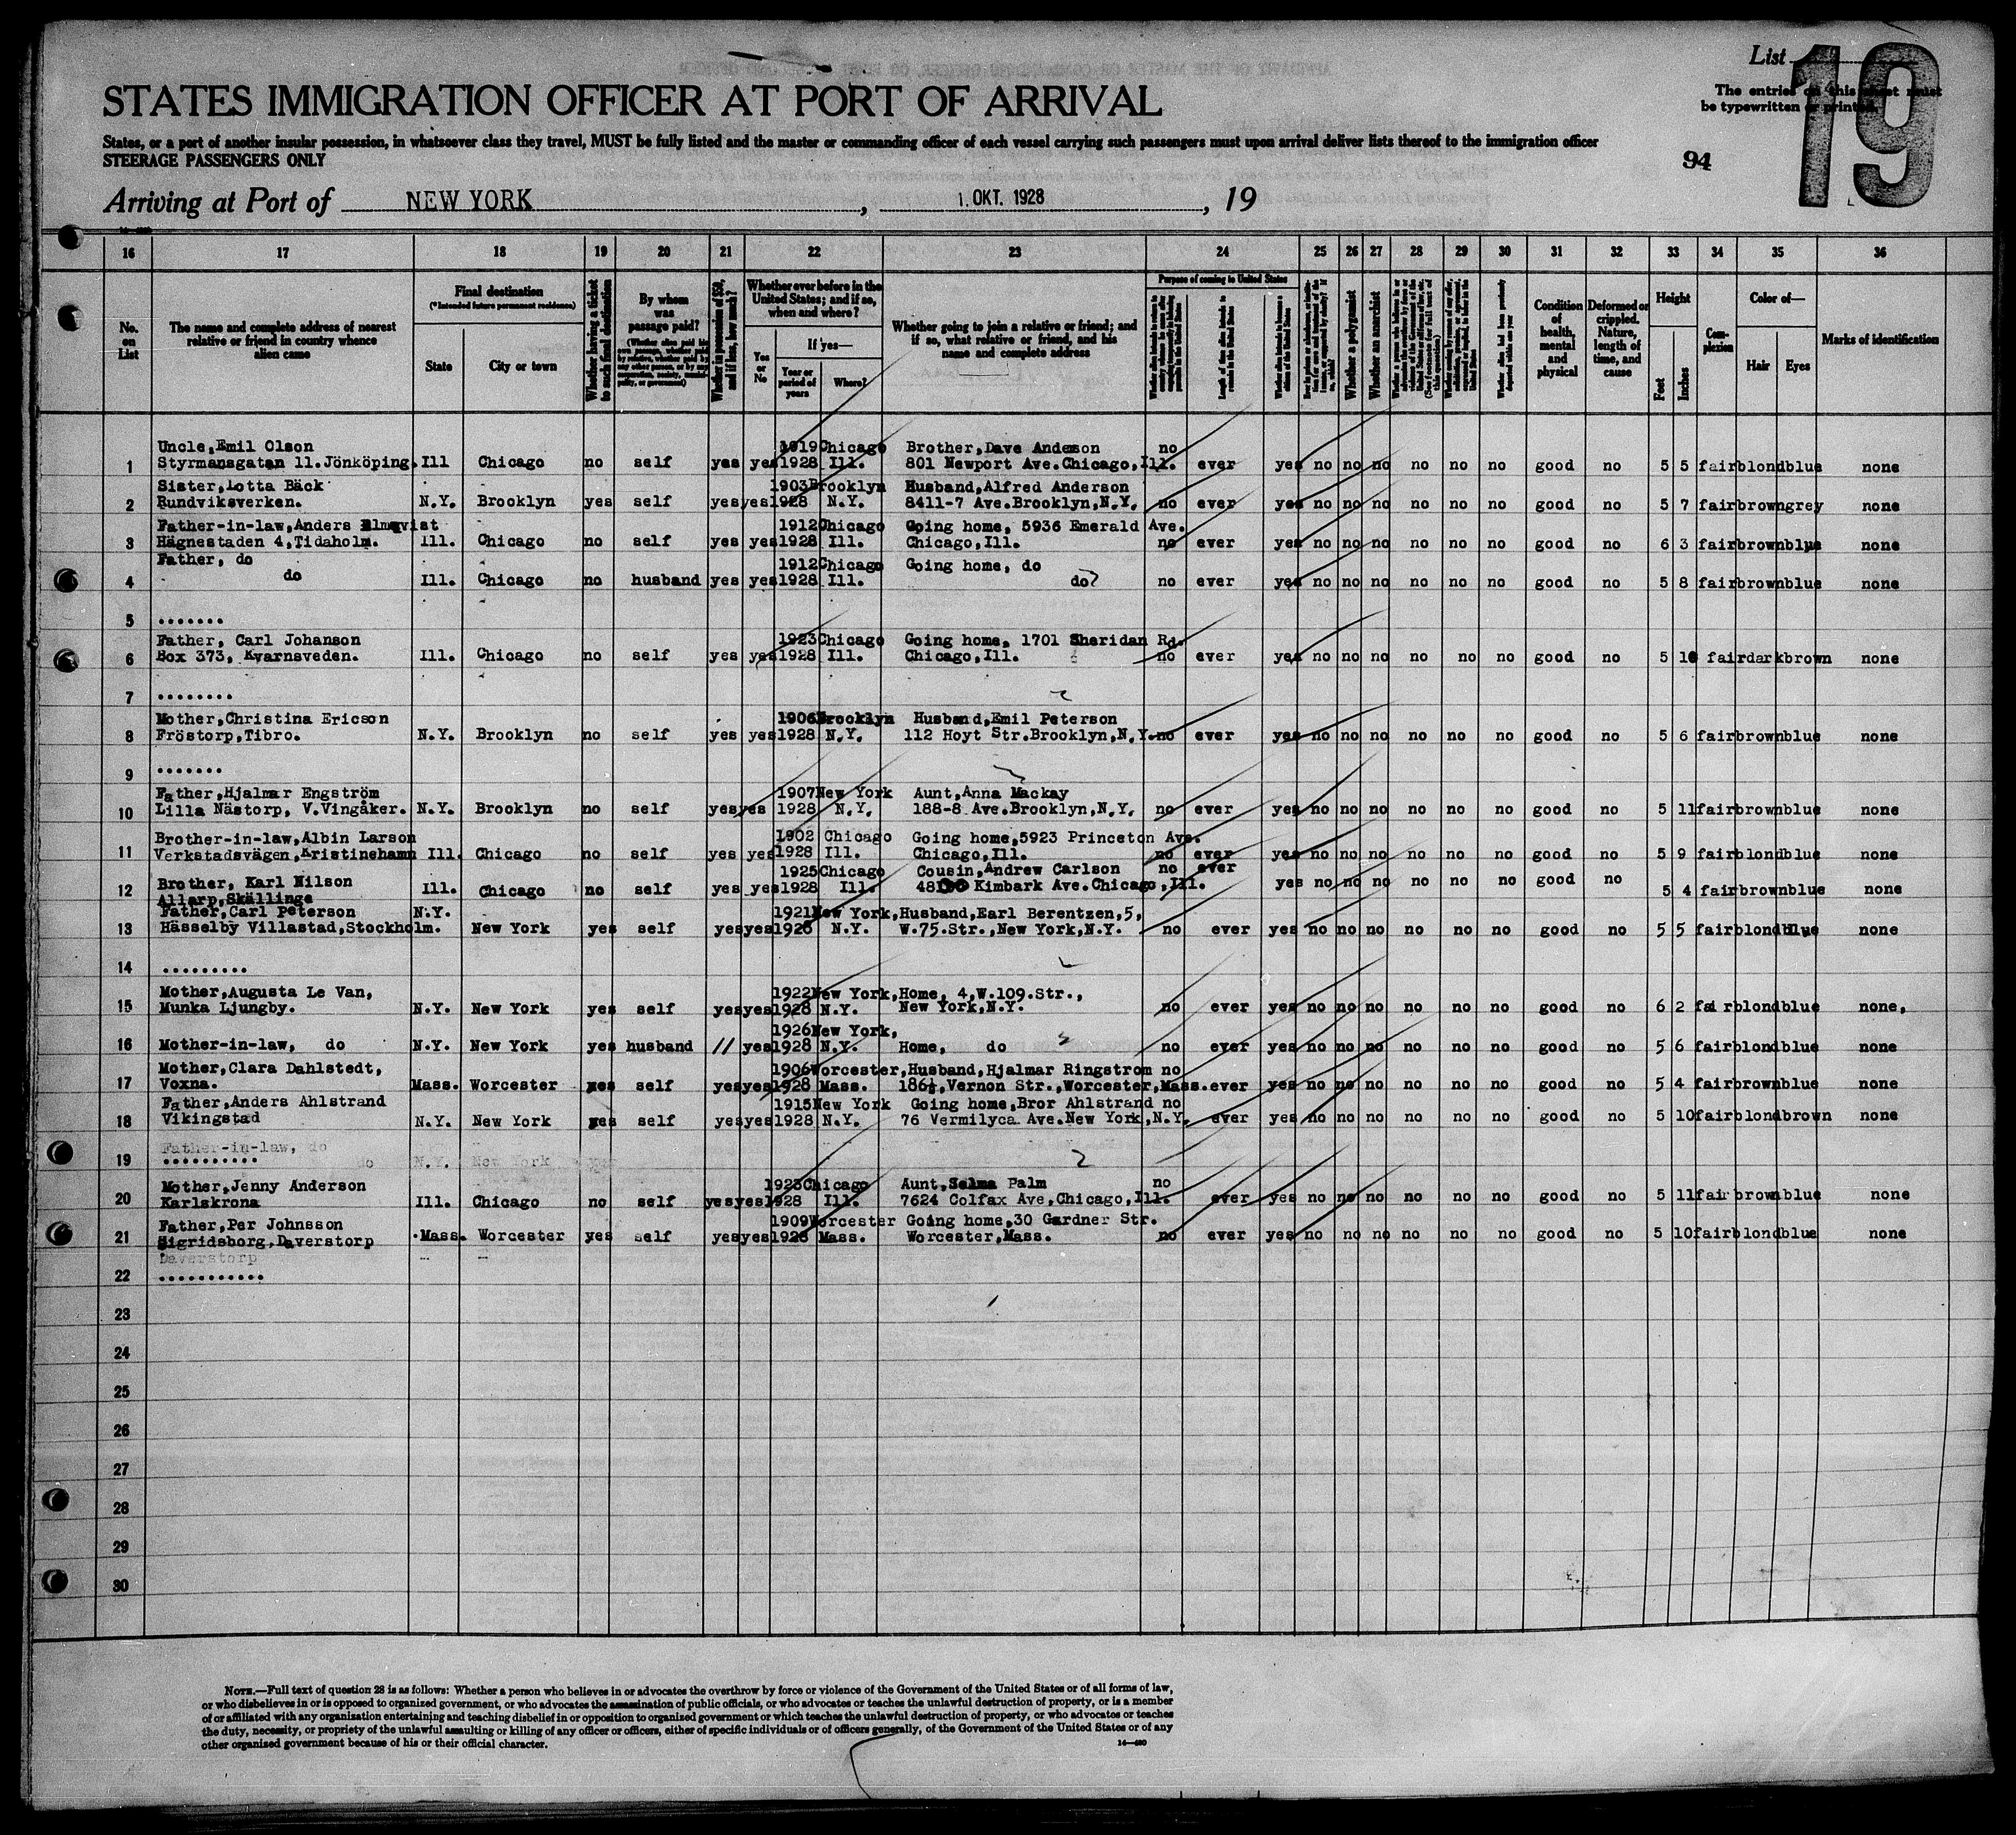 List 19
The entries on this sheet must
be typewritten or printed.
STATES IMMIGRATION OFFICER AT PORT OF ARRIVAL
States, or a port of another insular possession, in whatsoever class they travel, MUST be fully listed and the master or commanding officer of each vessel carrying such passengers must upon arrival deliver lists thereof to the immigration officer
STEERAGE PASSENGERS ONLY
94
Arriving at Port of NEW YORK, 1. OKT. 1928, 19
16 17 18 19 20 21 22 23 24 25 26 27 28 29 30 31 32 33 34 35 36
No. on List
The name and complete address of nearest relative or friend in country whence alien came
Final destination
(*Intended future permanent residence)
State
City or town
Whether having a ticket to such final destination
By whom was passage paid?
Whether in possession of $50, and if less, how much?
Whether ever before in the United States; and if so, when and where?
Yes or No
If yes—
Year or period of years
Where?
Whether going to join a relative or friend; and if so, what relative or friend, and his name and complete address
Purpose of coming to United States
Whether a polygamist
Whether an anarchist
Condition of health, mental and physical
Deformed or crippled. Nature, length of time, and cause
Height
Feet
Inches
Complexion
Color of—
Hair
Eyes
Marks of identification
Uncle,Emil Olson 1919 Chicago Brother,Dave Anderson no
1 Styrmansgatan 11.Jönköping. Ill Chicago no self yes yes 1928 Ill. 801 Newport Ave.Chicago,Ill. ever yes no no no no no no good no 5 5 fair blond blue none
Sister,Lotta Bäck 1903 Brooklyn Husband,Alfred Anderson
2 Rundviksverken. N.Y. Brooklyn yes self yes yes 1928 N.Y. 8411-7 Ave.Brooklyn,N.Y. no ever yes no no no no no no good no 5 7 fair brown grey none
Father-in-law,Anders Elmqvist 1912 Chicago Going home, 5936 Emerald Ave.
3 Hägnestaden 4,Tidaholm. Ill. Chicago no self yes yes 1928 Ill. Chicago,Ill. no ever yes no no no no no no good no 6 3 fair brown blue none
Father, do 1912 Chicago Going home, do
4 do Ill. Chicago no husband yes yes 1928 Ill. do no ever yes no no no no no no good no 5 8 fair brown blue none
5 .......
Father, Carl Johanson 1923 Chicago Going home, 1701 Sheridan Rd.
6 Box 373, Kvarnsveden. Ill. Chicago no self yes yes 1928 Ill. Chicago,Ill. no ever yes no no no no no no good no 5 10 fair dark brown none
7 ........
Mother,Christina Ericson 1906 Brooklyn Husband,Emil Peterson
8 Fröstorp,Tibro. N.Y. Brooklyn no self yes yes 1928 N.Y. 112 Hoyt Str.Brooklyn,N.Y. no ever yes no no no no no no good no 5 6 fair brown blue none
9 .......
Father,Hjalmar Engström 1907 New York Aunt,Anna Mackay
10 Lilla Nästorp, V.Vingåker. N.Y. Brooklyn no self yes yes 1928 N.Y. 188-8 Ave.Brooklyn,N.Y. no ever yes no no no no no no good no 5 11 fair brown blue none
Brother-in-law,Albin Larson 1902 Chicago Going home,5923 Princeton Ave.
11 Verkstadsvägen,Kristinehamn Ill. Chicago no self yes yes 1928 Ill. Chicago,Ill. no ever yes no no no no no no good no 5 9 fair blond blue none
1925 Chicago Cousin,Andrew Carlson no ever
12 Brother, Karl Nilson Ill. Chicago no self yes yes 1928 Ill. Kimbark Ave.Chicago,Ill. yes no no no no no no good no 5 4 fair brown blue none
Allarp,Skällinge
Father,Carl Peterson N.Y. 1921 New York, Husband,Earl Berentzen,5,
13 Hässelby Villastad,Stockholm. New York yes self yes yes 1928 N.Y. W.75.Str.,New York,N.Y. no ever yes no no no no no no good no 5 5 fair blond blue none
14 .........
Mother,Augusta Le Van, 1922 New York, Home, 4,W.109.Str.,
15 Munka Ljungby. N.Y. New York yes self yes yes 1928 N.Y. New York,N.Y. no ever yes no no no no no no good no 6 2 fair blond blue none,
1926 New York,
16 Mother-in-law, do N.Y. New York yes husband // yes 1928 N.Y. Home, do no ever yes no no no no no no good no 5 6 fair blond blue none
Mother,Clara Dahlstedt, 1906 Worcester, Husband,Hjalmar Ringstrom no
17 Voxna. Mass. Worcester yes self yes yes 1928 Mass. 186½,Vernon Str.,Worcester,Mass. ever yes no no no no no no good no 5 4 fair brown blue none
Father,Anders Ahlstrand 1915 New York Going home,Bror Ahlstrand no
18 Vikingstad N.Y. New York yes self yes yes 1928 N.Y. 76 Vermilyca Ave.New York,N.Y. ever yes no no no no no no good no 5 10 fair blond brown none
Father-in-law, do
19 .......... do N.Y. New York yes
Mother,Jenny Anderson 1923 Chicago Aunt,Selma Palm no
20 Karlskrona Ill. Chicago no self yes yes 1928 Ill. 7624 Colfax Ave,Chicago,Ill. ever yes no no no no no no good no 5 11 fair brown blue none
Father,Per Johnsson 1909 Worcester Going home,30 Gardner Str.
21 Sigridsborg,Daverstorp Mass. Worcester yes self yes yes 1928 Mass. Worcester,Mass. no ever yes no no no no no no good no 5 10 fair blond blue none
Daverstorp
22 ...........
23
24
25
26
27
28
29
30
NOTE.—Full text of question 28 is as follows: Whether a person who believes in or advocates the overthrow by force or violence of the Government of the United States or of all forms of law,
or who disbelieves in or is opposed to organized government, or who advocates the assassination of public officials, or who advocates or teaches the unlawful destruction of property, or is a member
of or affiliated with any organization entertaining and teaching disbelief in or opposition to organized government or which teaches the unlawful destruction of property, or who advocates or teaches
the duty, necessity, or propriety of the unlawful assaulting or killing of any officer or officers, either of specific individuals or of officers generally, of the Government of the United States or of any
other organized government because of his or their official character.